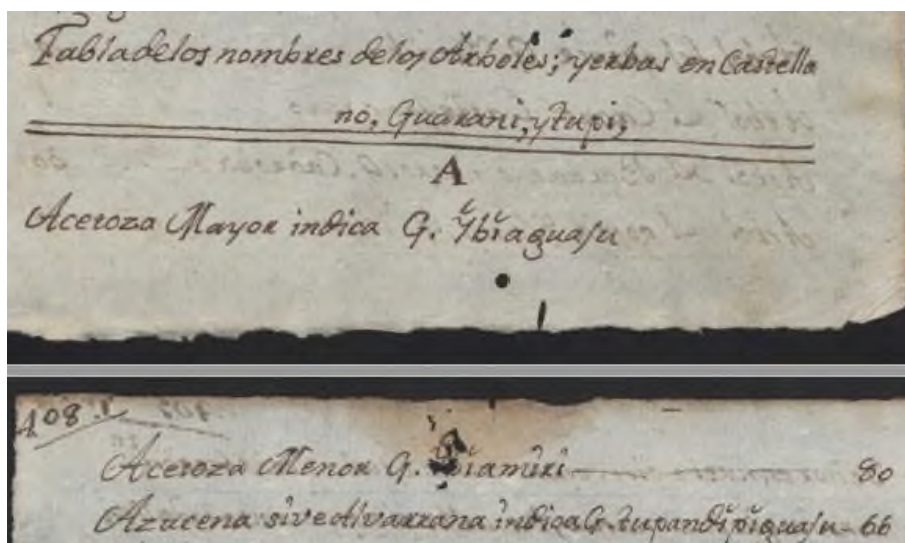 Tabla de los nombres de los Arboles; yerbas en Castella
no, Guarani, y tupi,
A
Aceroza Mayor indica G. Ybĭaguaſu
408.
Aceroza Menor G. 80
Azucena sive indica G. tupandĭpĭguaſu - 66